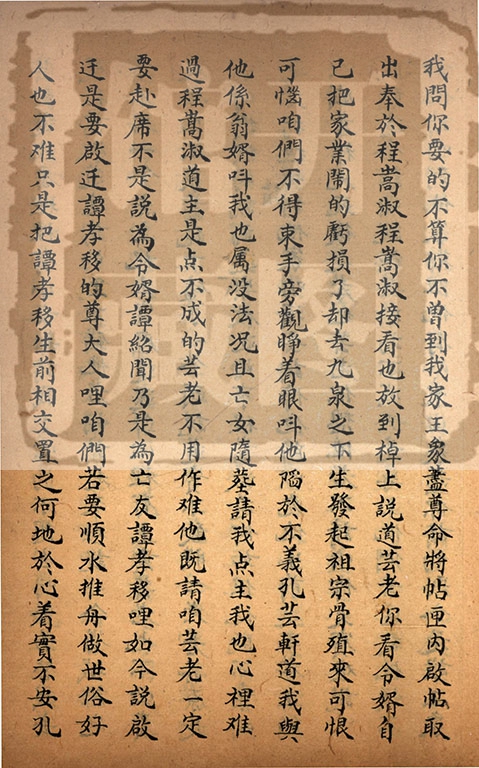 我問你要的不算你不曾到我家王象藎尊命將帖匣內啟帖取
出奉於程嵩淑程嵩淑接看也放到棹上說道芸老你看令婿自
己把家業鬧的虧損了却去九泉之下生發起祖宗骨殖來可恨
可惱咱們不得束手旁觀睜着眼呌他陷於不義孔芸軒道我與
他係翁婿呌我也属没法况且亡女隨塟請我点主我也心裡难
過程嵩淑道主是点不成的芸老不用作难他既請咱芸老一定
要赴席不是説為令婿譚紹聞乃是為亡友譚孝移哩如今説啟
迁是要啟迁譚孝移的尊大人哩咱們若要順水推舟做世俗好
人也不难只是把譚孝移生前相交置之何地於心着實不安孔